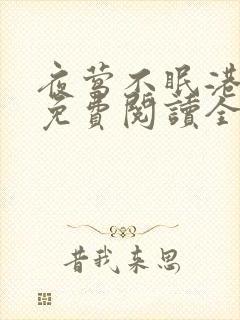 夜莺不眠港
免費閱讀全
昔我来思